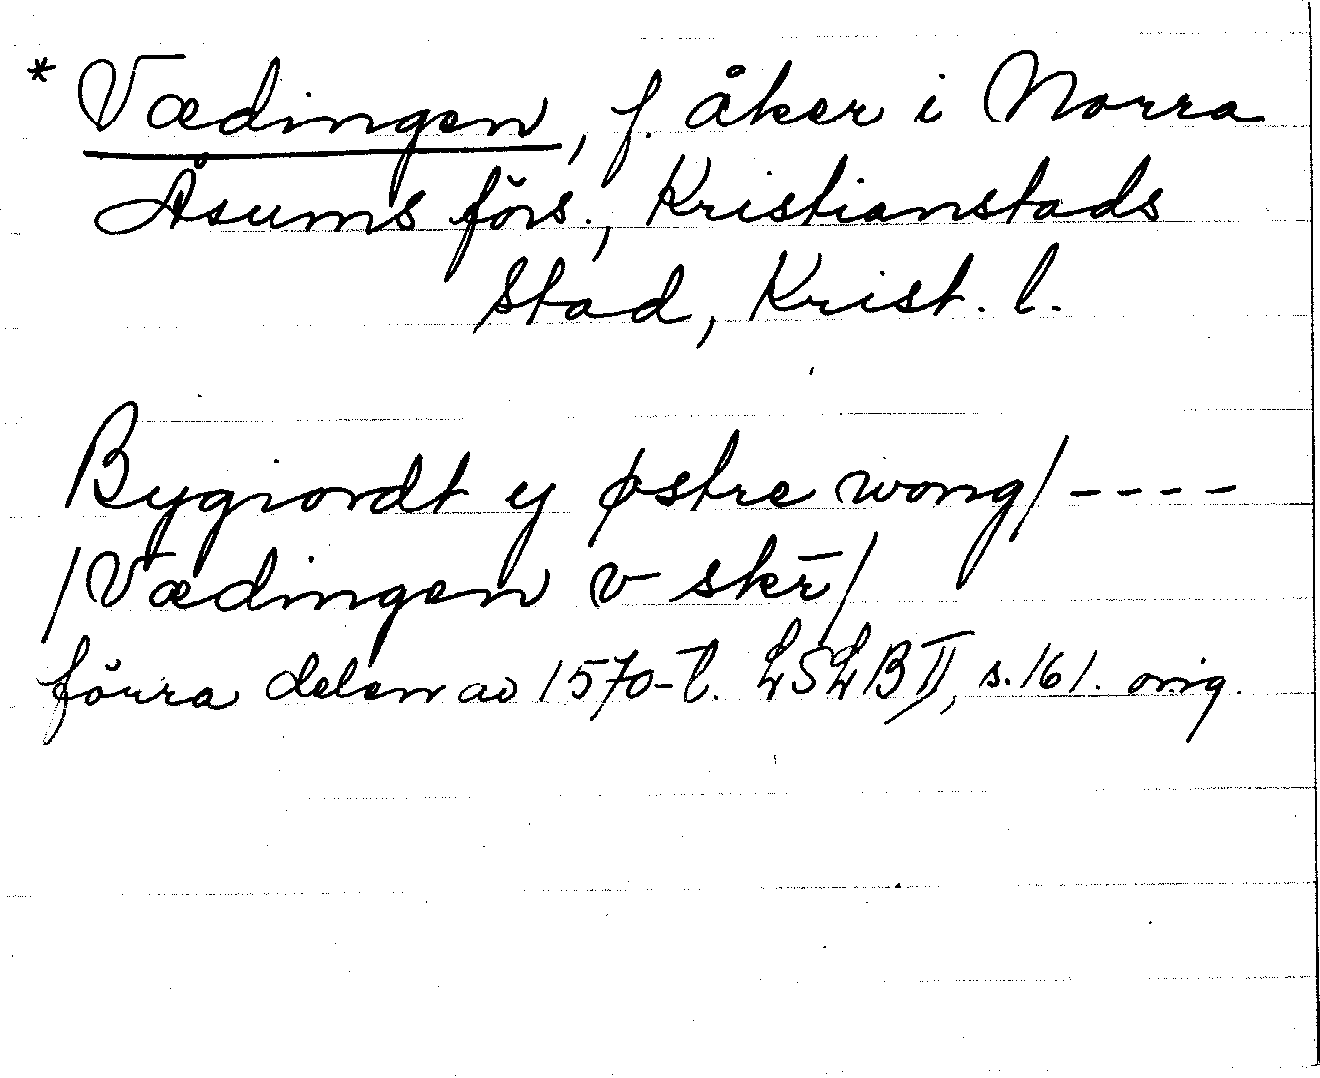 * Vædingen, f. åker i Norra
Åsums förs., Kristianstads
stad, Krist. l.
Bygiordt y østre wong/ ----
/Vædingen v skr̄/
förra delen av 1570-t. LSLB II, s. 161. orig.